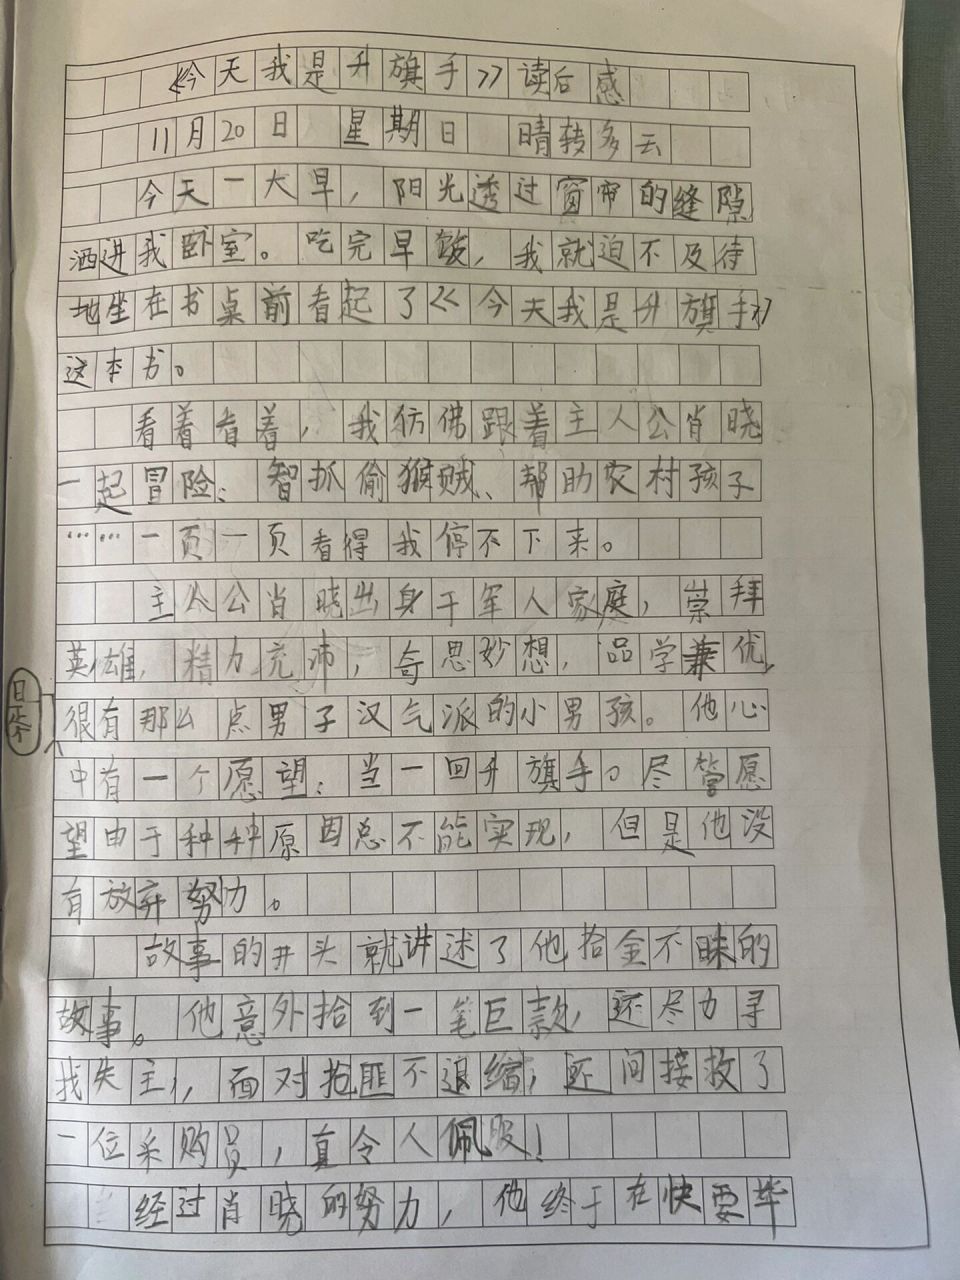 《今天我是升旗手》读后感
11月20日 星期日 晴转多云
今天一大早，阳光透过窗帘的缝隙
洒进我卧室。吃完早饭，我就迫不及待
地坐在书桌前看起了《今天我是升旗手》
这本书。
看着看着，我仿佛跟着主人公肖晓
一起冒险：智抓偷猴贼、帮助农村孩子
……一页一页看得我停不下来。
主公公肖晓出身于军人家庭，崇拜
英雄，精力充沛，奇思妙想，品学兼优，
很有那么点男子汉气派的小男孩。他心
中有一个愿望：当一回升旗手。尽管愿
望由于种种原因总不能实现，但是他没
有放弃努力。
故事的开头就讲述了他拾金不昧的
故事。他意外拾到一笔巨款，还尽力寻
找失主，面对抢匪不退缩，还间接救了
一位采购员，真令人佩服！
经过肖晓的努力，他终于在快要毕